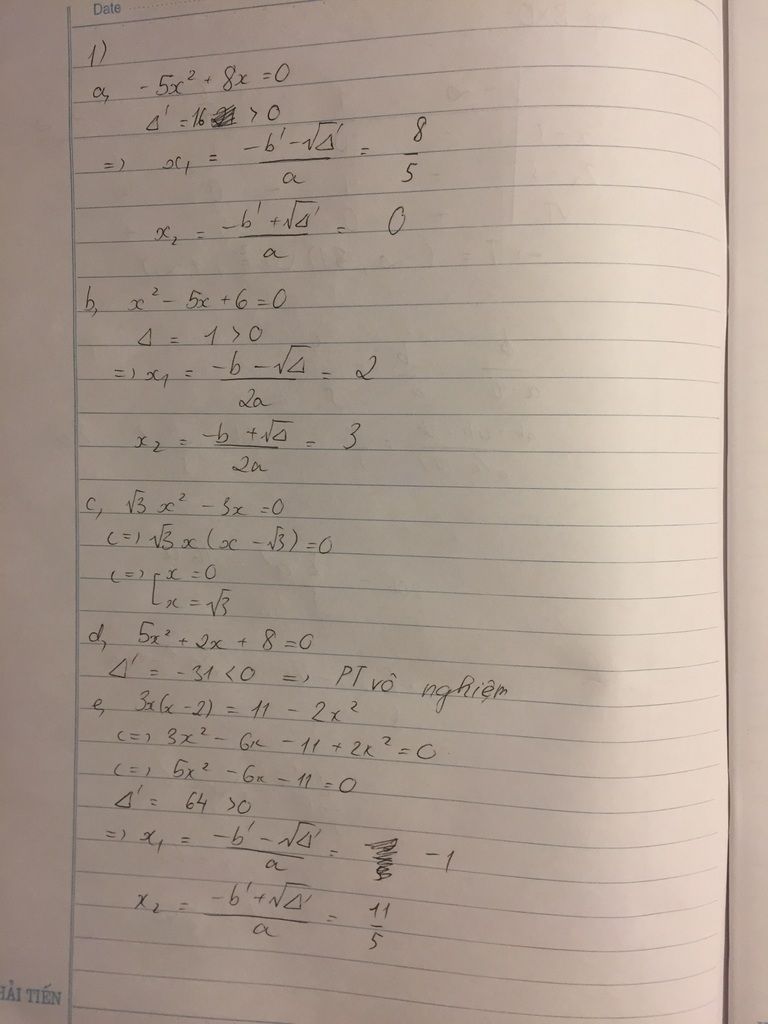 Date
1)
a, -5x² + 8x = 0
Δ' = 16 > 0
=> x₁ = (-b' - √Δ')/a = 8/5
x₂ = (-b' + √Δ')/a = 0
b, x² - 5x + 6 = 0
Δ = 1 > 0
=> x₁ = (-b - √Δ)/2a = 2
x₂ = (-b + √Δ)/2a = 3
c, √3 x² - 3x = 0
<=> √3 x (x - √3) = 0
<=> [x = 0
x = √3
d, 5x² + 2x + 8 = 0
Δ' = -31 < 0 => PT vô nghiệm
e, 3x(x - 2) = 11 - 2x²
<=> 3x² - 6x - 11 + 2x² = 0
<=> 5x² - 6x - 11 = 0
Δ' = 64 > 0
=> x₁ = (-b' - √Δ')/a = -1
x₂ = (-b' + √Δ')/a = 11/5
HẢI TIẾN